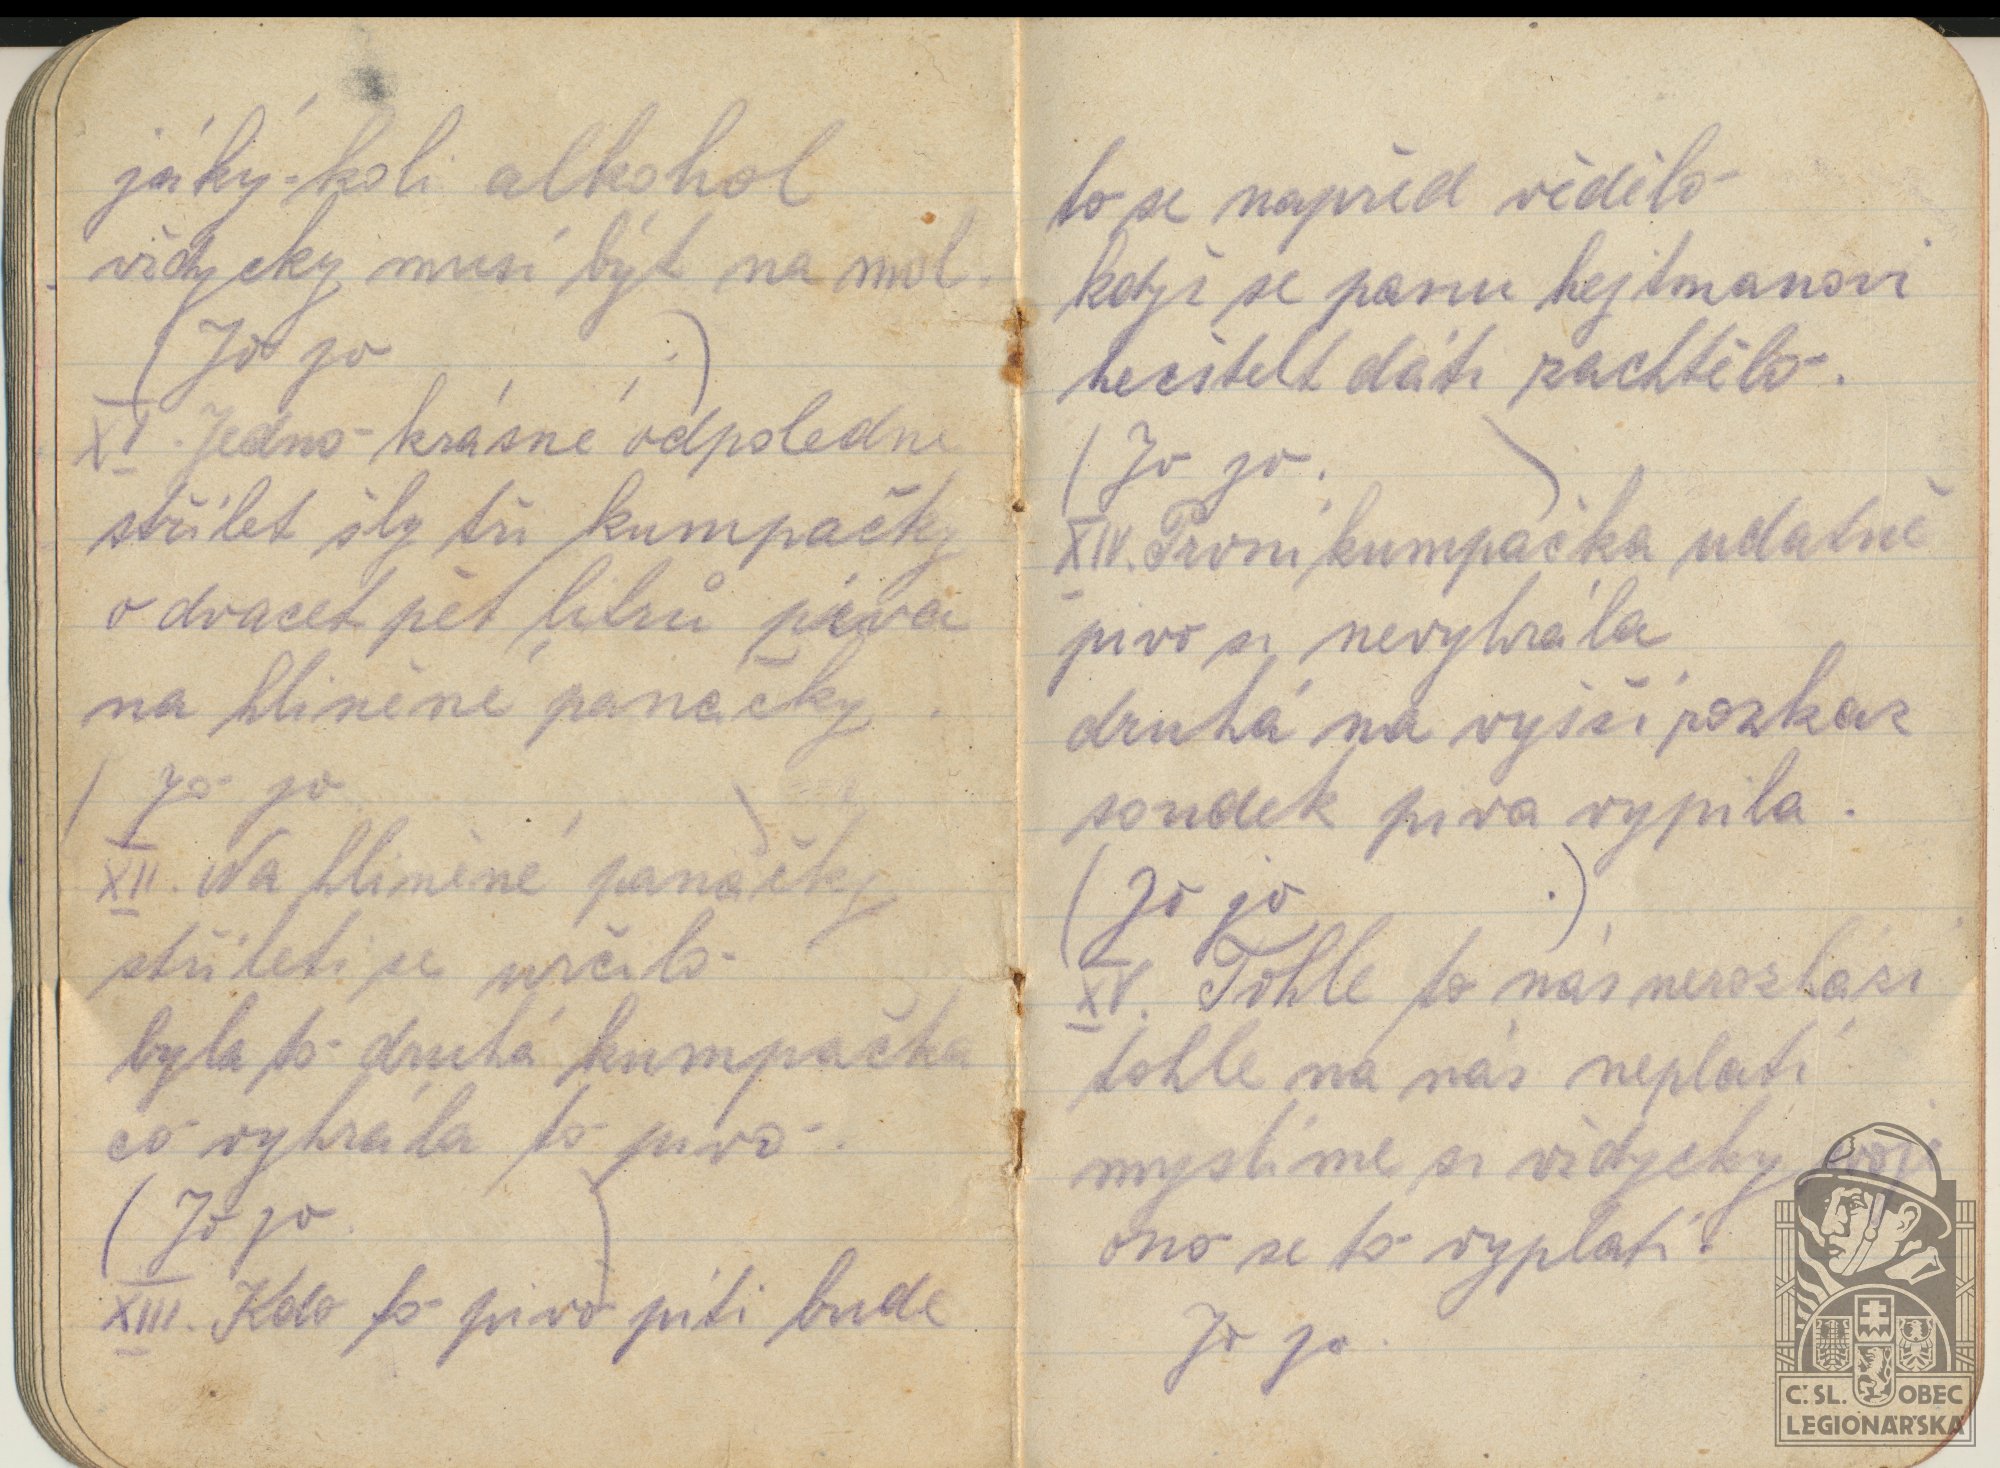 jáký-koli alkohol
vždycky musí být na mol.
(Jo jo .)
XI. Jedno krásné odpoledne
střílet šly tři kumpačky
o dvacet pět litrů piva
na hliněné panačky.
( Jo jo )
XII. Na hliněné panačky
stříleti se určilo
byla to druhá kumpačka
co vyhrála to pivo.
(Jo jo. )
XIII. Kdo to pivo píti bude
to se napřed vědělo
když se panu hejtmanovi
hecštelt dáti zachtělo.
(Jo jo. )
XIV. První kumpačka udatně
pivo si nevyhrála
druhá na vyšší rozkaz
soudek piva vypila.
(Jo jo .)
XV. Tohle to nás nerozhází
tohle na nás neplatí
myslíme si vždycky svoje
ono se to vyplatí.
Jo jo.
Č. SL. OBEC
LEGIONÁŘSKÁ